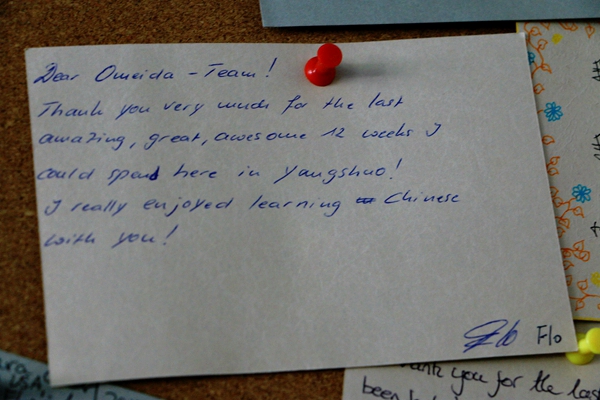 Dear Omeida - Team!
Thank you very much for the last
amazing, great, awesome 12 weeks I
could spend here in Yangshuo!
I really enjoyed learning Chinese
with you!
Flo Flo
thank you for the last
been